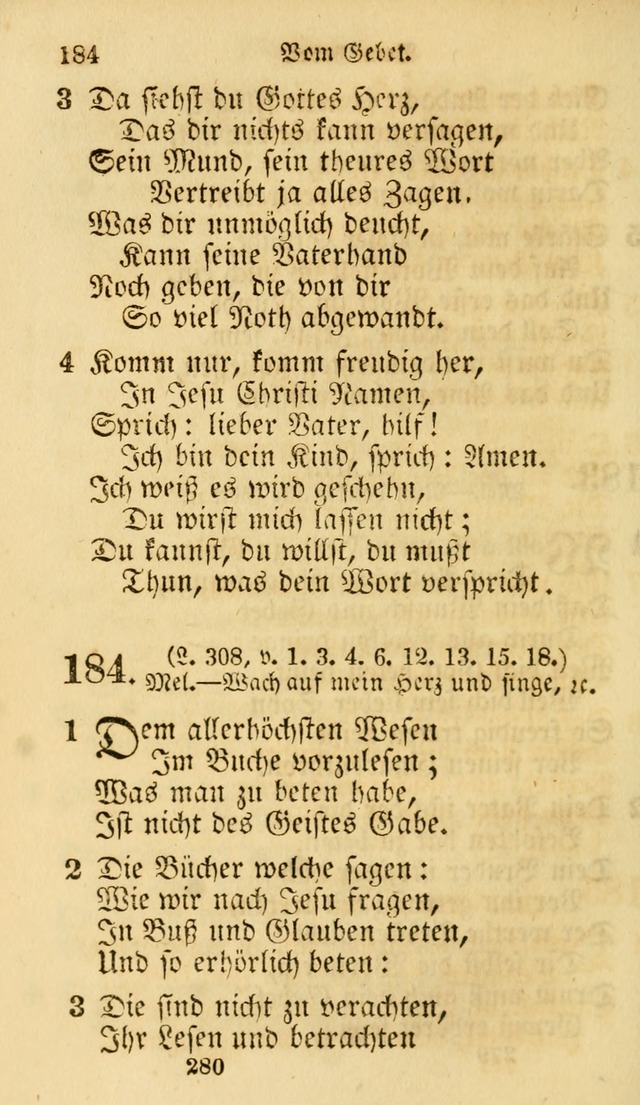 184 Vom Gebet.
3 Da siehst du Gottes Herz,
Das dir nichts kann versagen,
Sein Mund, sein theures Wort
Vertreibt ja alles Zagen.
Was dir unmöglich deucht,
Kann seine Vaterhand
Noch geben, die von dir
So viel Noth abgewandt.
4 Komm nur, komm freudig her,
In Jesu Christi Namen,
Sprich: lieber Vater, hilf!
Ich bin dein Kind, sprich: Amen.
Ich weiß es wird geschehn,
Du wirst mich lassen nicht;
Du kannst, du willst, du mußt
Thun, was dein Wort verspricht.
184. (L. 308, v. 1. 3. 4. 6. 12. 13. 15. 18.)
Mel.—Wach auf mein Herz und singe, ꝛc.
1 Dem allerhöchsten Wesen
Im Buche vorzulesen;
Was man zu beten habe,
Ist nicht des Geistes Gabe.
2 Die Bücher welche sagen:
Wie wir nach Jesu fragen,
In Buß und Glauben treten,
Und so erhörlich beten:
3 Die sind nicht zu verachten,
Ihr Lesen und betrachten
280